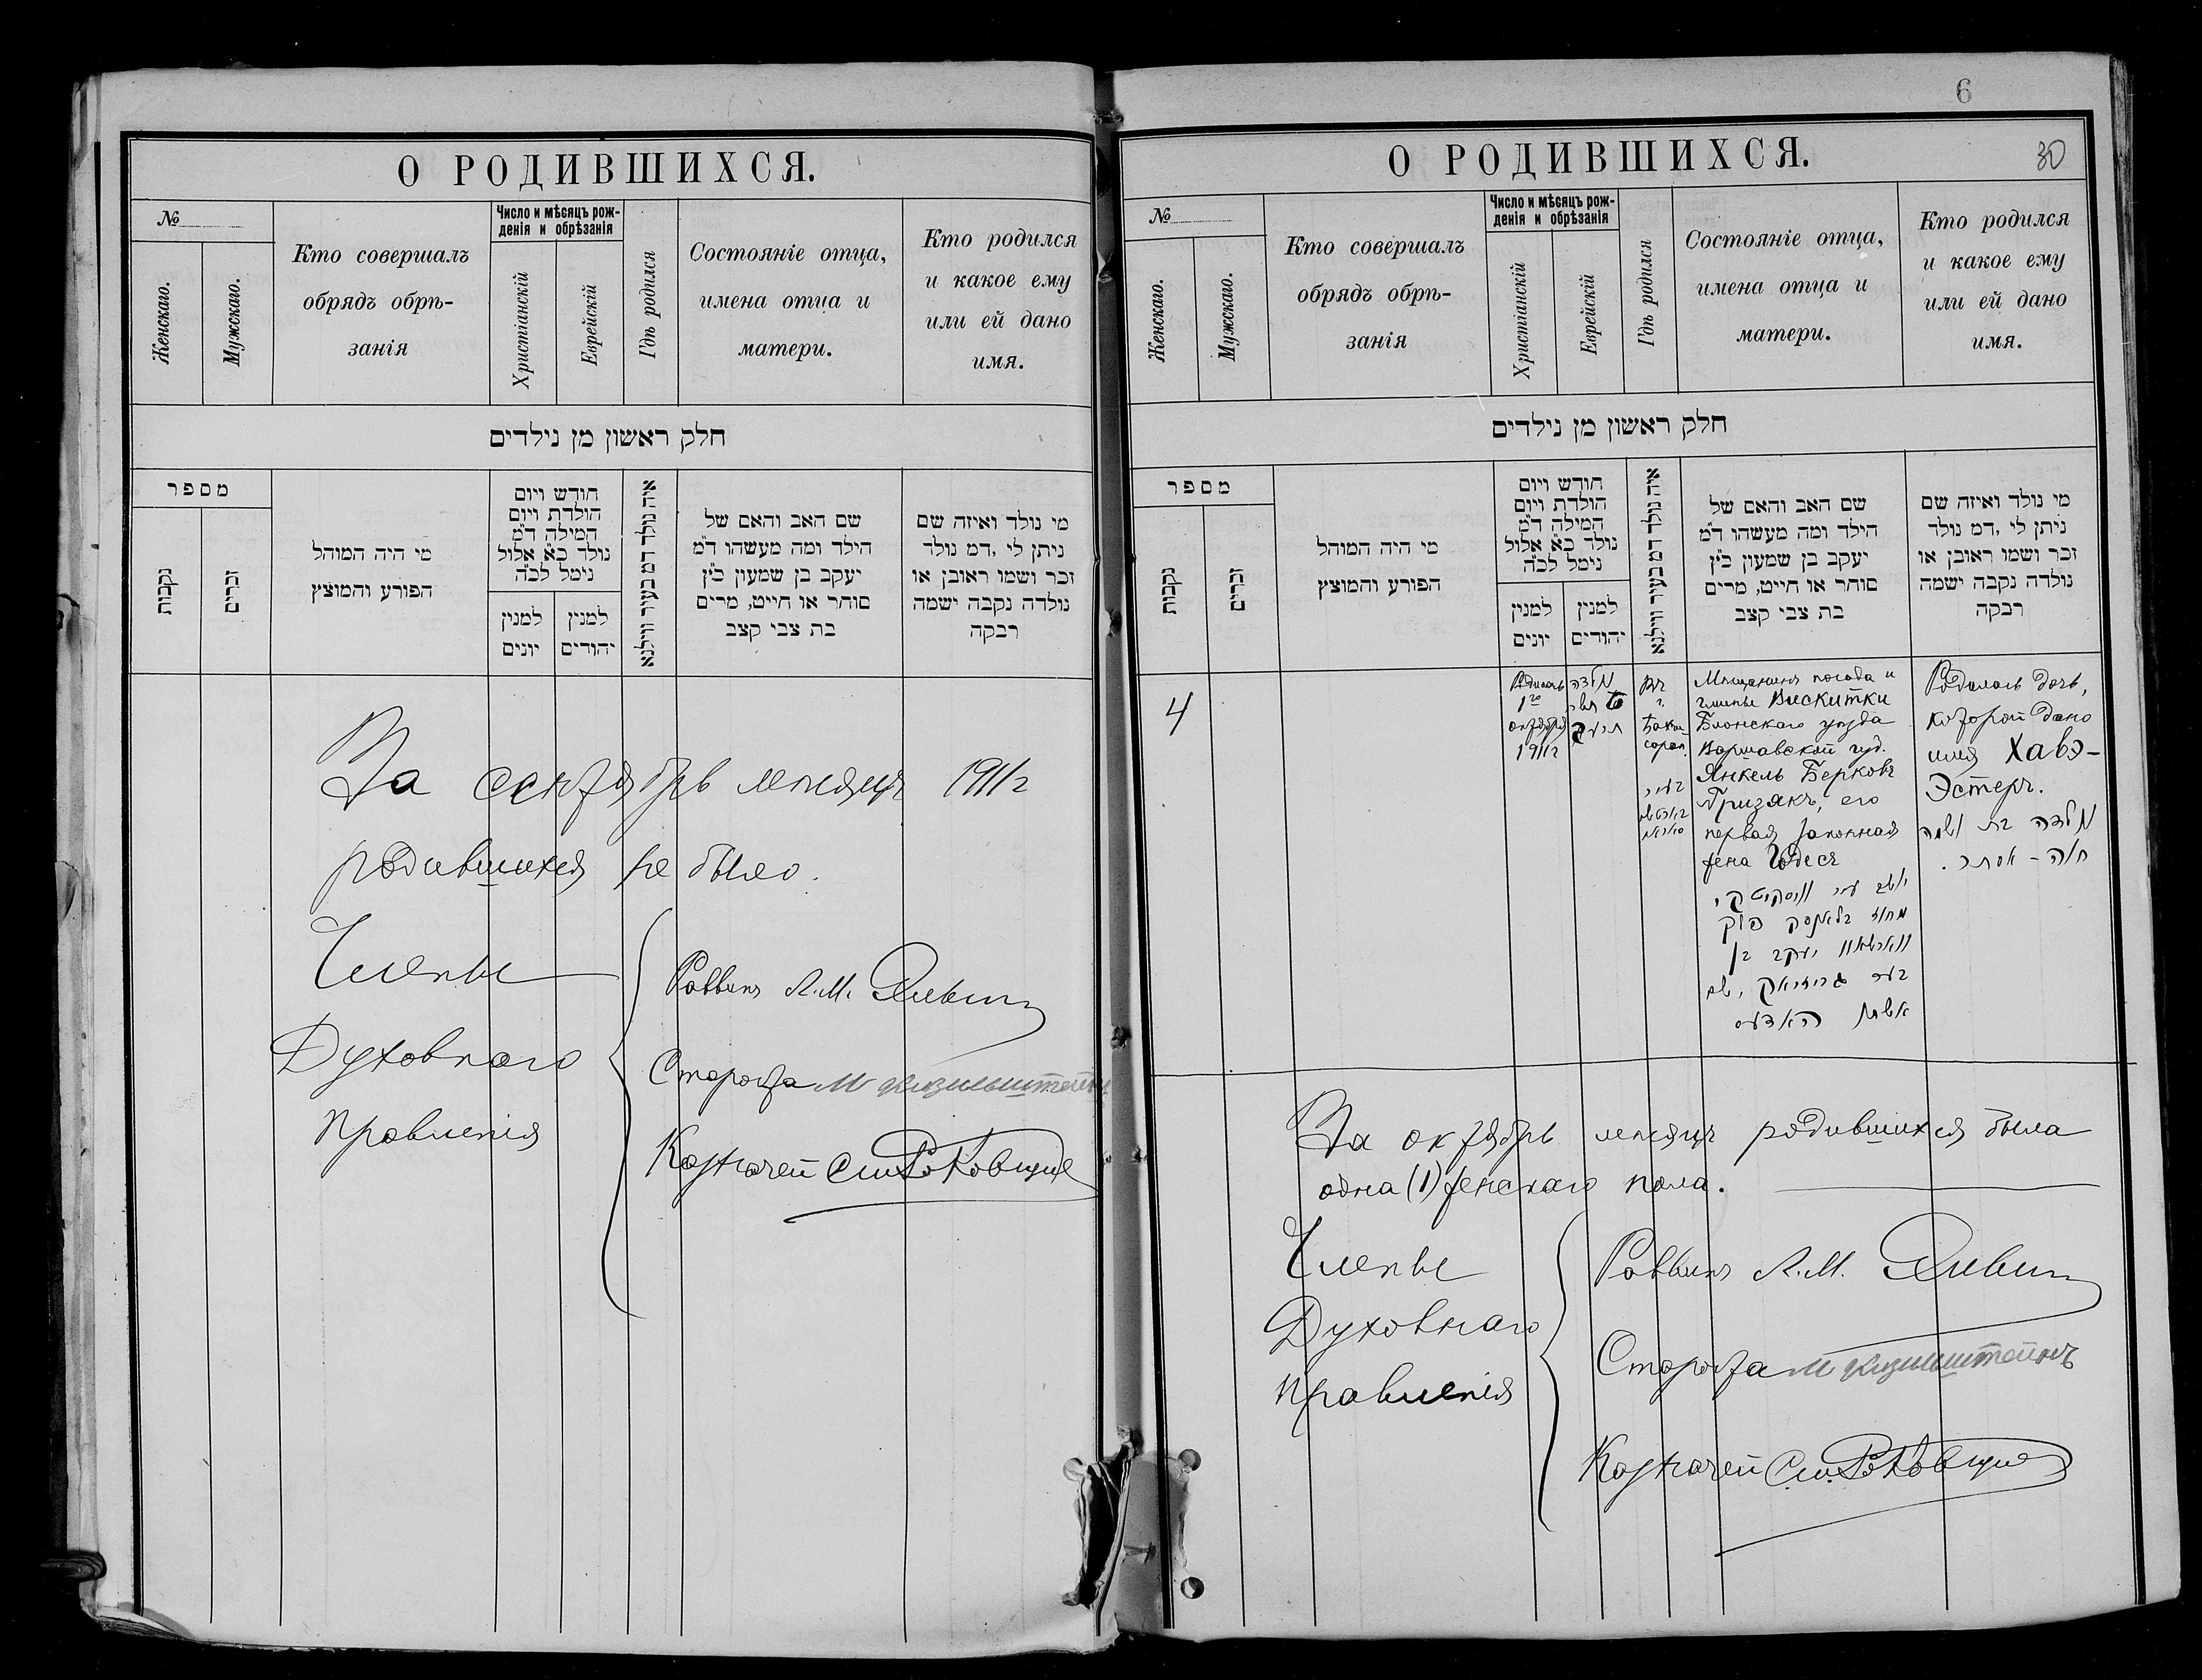 О РОДИВШИХСЯ.
№
Женскаго.
Мужскаго.
Кто совершалъ
обрядъ обрѣ-
занія
Число и мѣсяцъ рож-
денія и обрѣзанія
Христіанскій
Еврейскій
Гдѣ родился
Состояніе отца,
имена отца и
матери.
Кто родился
и какое ему
или ей дано
имя.
חלק ראשון מן נילדים
מספר
נקבות
זכרים
מי היה המוהל
הפורע והמוצץ
חודש ויום
הולדת ויום
המילה ד״מ
נולד כ״א אלול
נימל לכ״ה
למנין
יונים
למנין
יהודים
איה נולד דמ בעיר ווילנא
שם האב והאם של
הילד ומה מעשהו ד״מ
יעקב בן שמעון כ״ץ
סוחר או חייט, מרים
בת צבי קצב
מי נולד ואיזה שם
ניתן לי ,דמ נולד
זכר ושמו ראובן או
נולדה נקבה ישמה
רבקה
За сентябрь мѣсяцъ 1911г
родившихся не было.
Члены
Духовнаго
Правленія
Раввинъ А.М.
Староста М
Казначей
6
О РОДИВШИХСЯ.
30
№
Женскаго.
Мужскаго.
Кто совершалъ
обрядъ обрѣ-
занія
Число и мѣсяцъ рож-
денія и обрѣзанія
Христіанскій
Еврейскій
Гдѣ родился
Состояніе отца,
имена отца и
матери.
Кто родился
и какое ему
или ей дано
имя.
חלק ראשון מן נילדים
מספר
נקבות
זכרים
מי היה המוהל
הפורע והמוצץ
חודש ויום
הולדת ויום
המילה ד״מ
נולד כ״א אלול
נימל לכ״ה
למנין
יונים
למנין
יהודים
איה נולד דמ בעיר ווילנא
שם האב והאם של
הילד ומה מעשהו ד״מ
יעקב בן שמעון כ״ץ
סוחר או חייט, מרים
בת צבי קצב
מי נולד ואיזה שם
ניתן לי ,דמ נולד
זכר ושמו ראובן או
נולדה נקבה ישמה
רבקה
4
Родилась
1го
октября
1911г
נולדה
תרע״ב
Въ
г.
בעיר
Мѣщанинъ посада и
гмины Вискитки
Блонскаго уѣзда
Варшавской губ.
Янкель Берковъ
Гризакъ, его
первая законная
жена Годесъ
יושב עיר וויסקיטקי,
מחוז פלך
ווארשאווא יעקב בן
בער גריזאק, שם
אשתו האדעס
Родилась дочь,
которой дано
имя Хавэ-
Эстеръ.
נולדה בת ושמה
חוה - אסתר.
За октябрь мѣсяцъ родившихся была
одна (1) женскаго пола.
Члены
Духовнаго
Правленія
Раввинъ А.М.
Староста М
Казначей